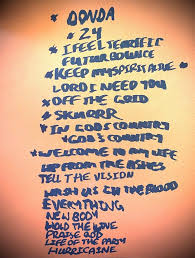 * DONDA
* 24
* I FEEL TERRIFIC
FUTURBOUNCE
* KEEP MY SPIRIT ALIVE *
LORD I NEED YOU
* OFF THE GRID
* SKURRR
* IN GODS COUNTRY
* GOD'S COUNTRY
* WELCOME TO MY LIFE
UP FROM THE ASHES
TELL THE VISION
WASH US IN THE BLOOD
EVERYTHING
NEW BODY
HOLD THE LINE
PRAISE GOD
LIFE OF THE PARTY
HURRICAINE